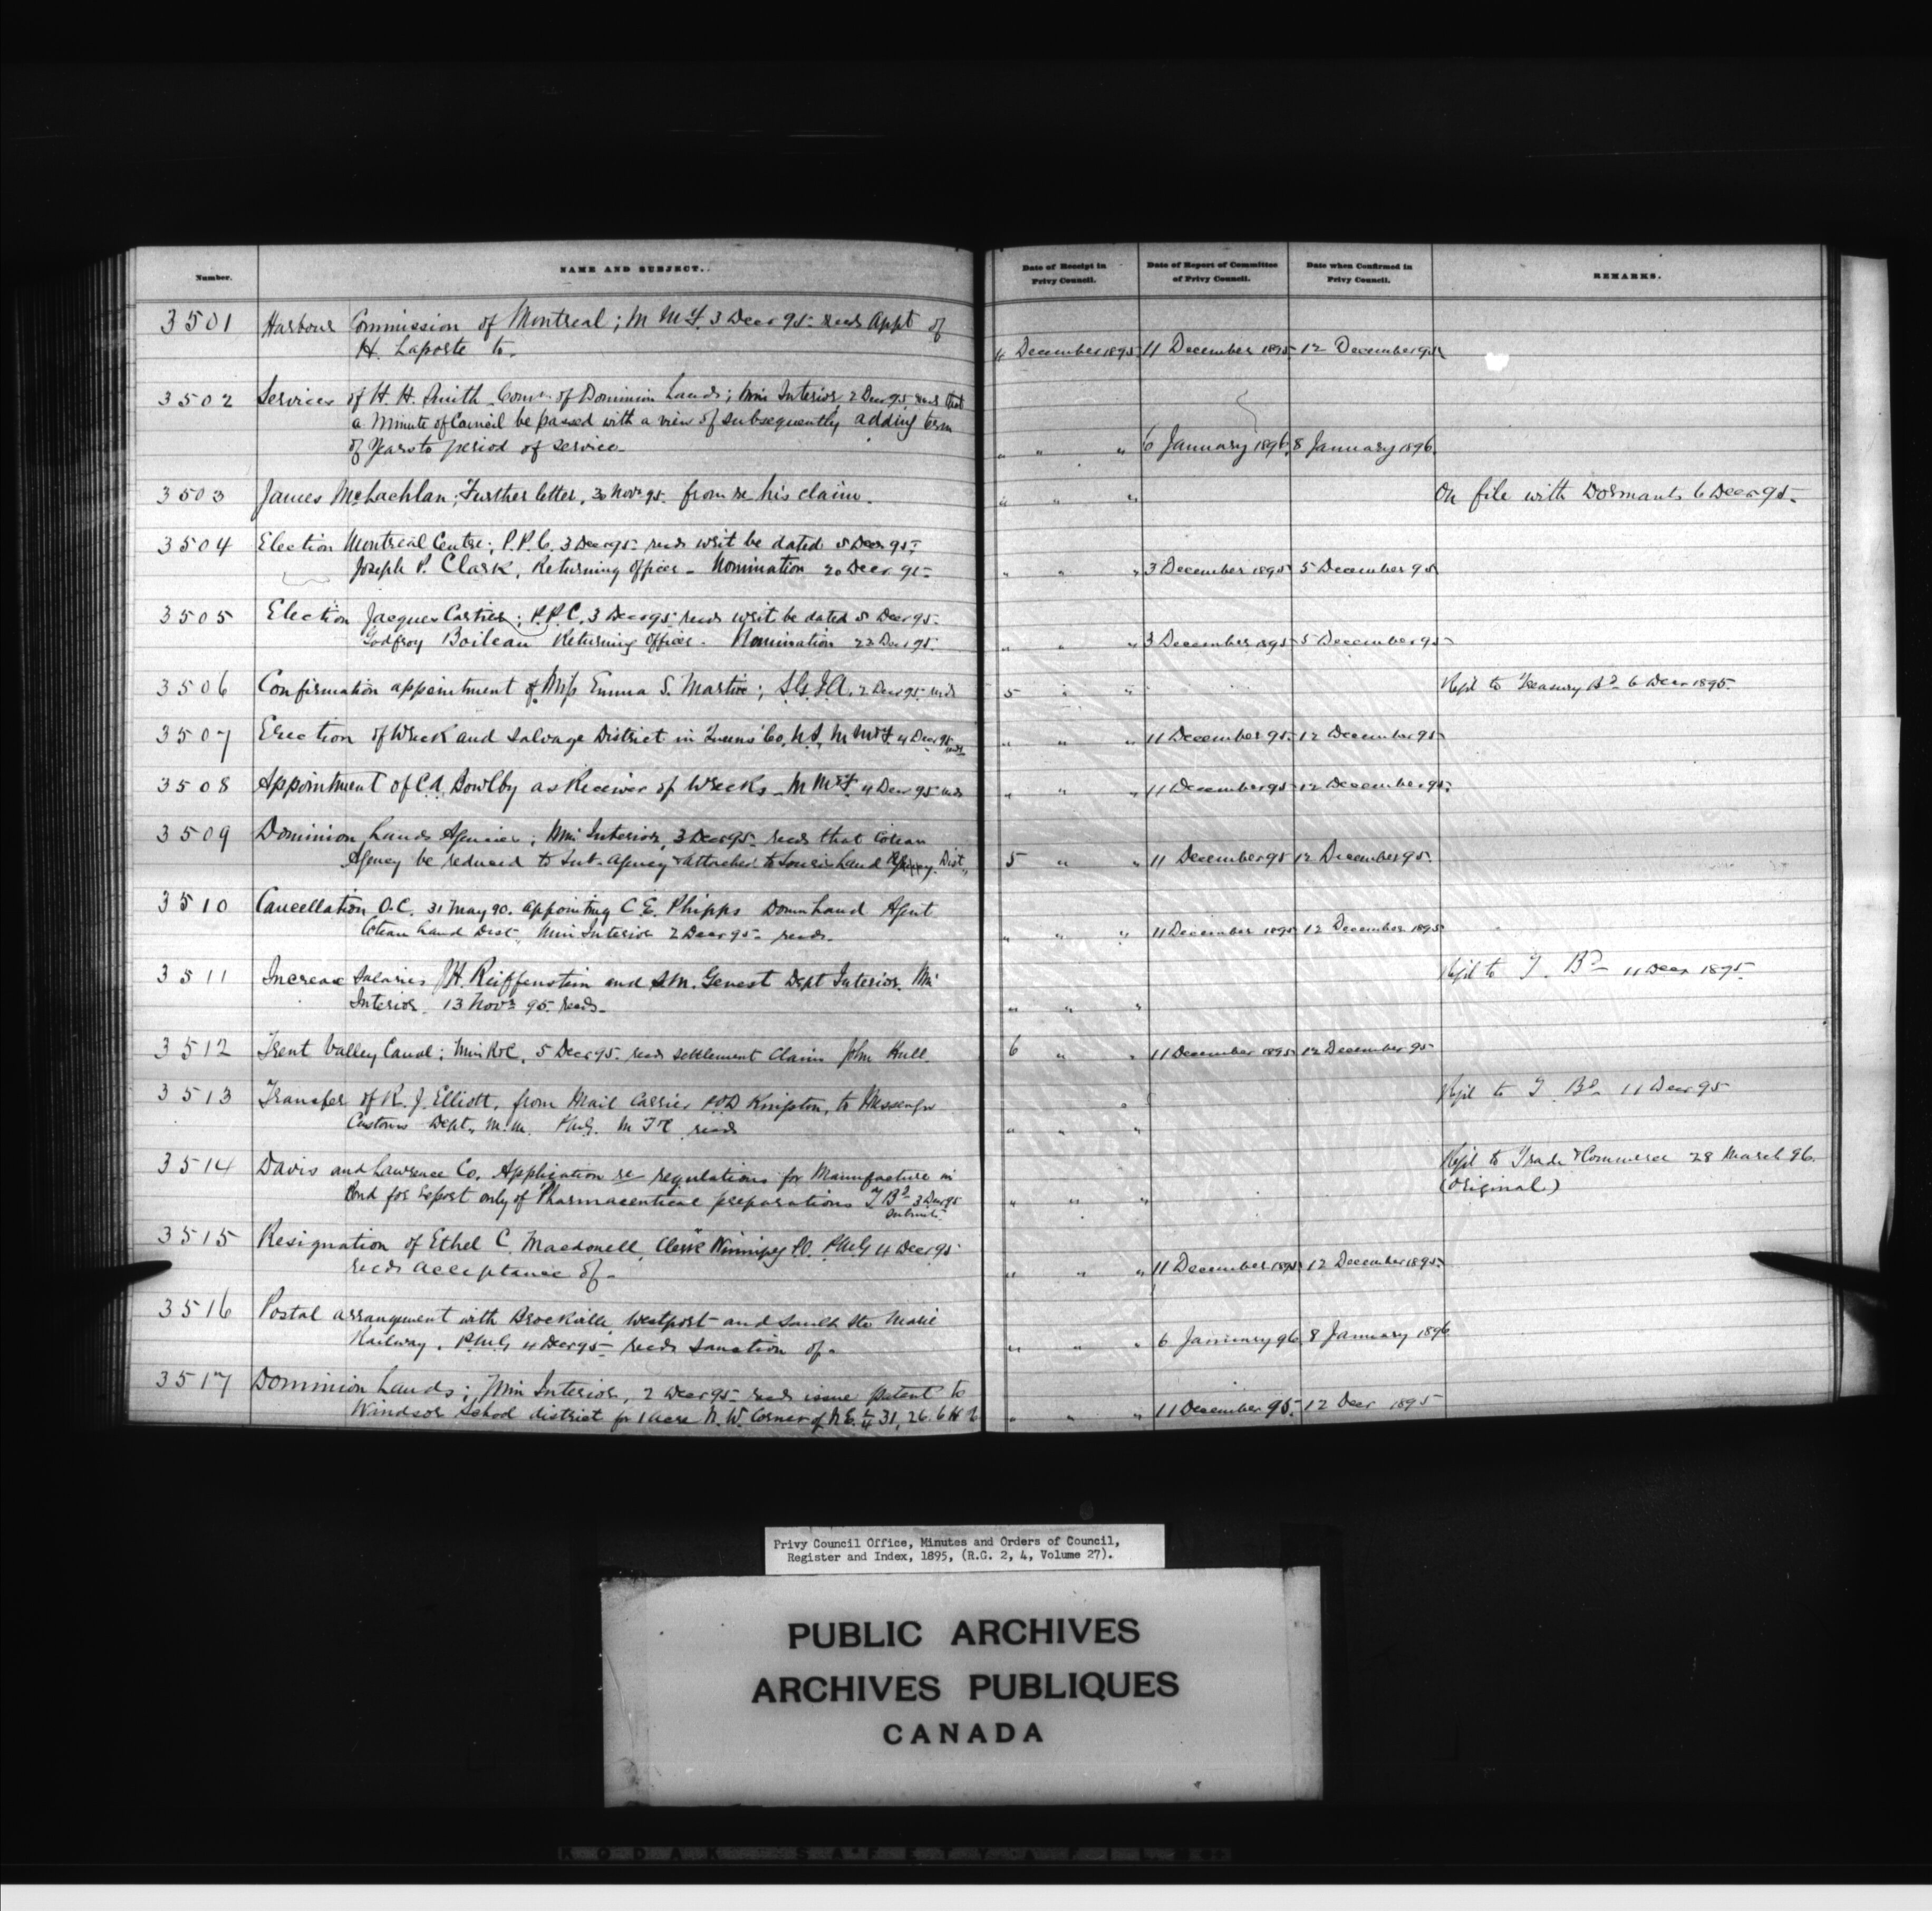 Number.
NAME AND SUBJECT.
Date of Receipt in Privy Council.
Date of Report of Committee of Privy Council.
Date when Confirmed in Privy Council.
REMARKS.
3501 Harbour Commission of Montreal; M M & F. 3 Decr 95 recds Appt of
H. Laporte to. 4 December 1895 11 December 1895 12 December 95
3502 Services of H. H. Smith Comr of Dominion Lands; Min Interior 2 Decr 95 recds that
a Minute of Council be passed with a view of subsequently adding term
of Years to period of service. " " " 6 January 1896 8 January 1896
3503 James McLachlan; Further letter, 30 Novr 95 from re his claim. " " " On file with Dormants 6 Decr 95
3504 Election Montreal Centre; P.P.C. 3 Decr 95 recds writ be dated 5 Decr 95
Joseph P. Clark, Returning Officer - Nomination 20 Decr 95 " " " 3 December 1895 5 December 95
3505 Election Jacques Cartier; P.P.C. 3 Decr 95 recds writ be dated 5 Decr 95
Godfroy Boileau Returning Officer - Nomination 22 Decr 95. " " " 3 December 1895 5 December 95
3506 Confirmation appointment of Miss Emma S. Martin; S.G.I.A. 2 Decr 95 recds 5 " " Refd to Treasury Bd 6 Decr 1895
3507 Erection of Wreck and Salvage District in Queens Co, N.S, M M & F 4 Decr 95 recds " " " 11 December 95 12 December 95
3508 Appointment of C.A. Bowlby as Receiver of Wrecks - M M & F. 4 Decr 95 recds " " " 11 December 95 12 December 95
3509 Dominion Lands Agencies; Min Interior, 3 Decr 95 recds that Coteau
Agency be reduced to Sub-Agency & attached to Souris Land Agency Dist. 5 " " 11 December 95 12 December 95
3510 Cancellation O.C. 31 May 90. appointing C.E. Phipps Domn Land Agent
Coteau Land Dist. Min Interior 2 Decr 95 recds. " " " 11 December 1895 12 December 1895
3511 Increase Salaries J.H. Reiffenstein and S.M. Genest Dept Interior. Min Refd to T. Bd 11 Decr 1895
Interior 13 Novr 95 recds - " " "
3512 Trent Valley Canal; Min R & C, 5 Decr 95 recds settlement Claim John Hull. 6 " " 11 December 1895 12 December 95
3513 Transfer of R. J. Elliott, from Mail Carrier P.O.D Kingston, to Messenger Refd to T Bd 11 Decr 95
Customs Dept. M.M. PMG. M T C recds " " "
3514 Davis and Lawrence Co, Application re regulations for Manufacture in Refd to Trade & Commerce 28 March 96.
Bond for Export only of Pharmaceutical preparations T Bd 3 Decr 95 submits " " " (Original)
3515 Resignation of Ethel C. Macdonell, Clerk Winnipeg P.O. PMG 4 Decr 95
recds acceptance of - " " " 11 December 1895 12 December 1895
3516 Postal arrangement with Brockville Westport and Sault Ste Marie
Railway. PMG 4 Decr 95 recds Sanction of - " " " 6 January 96 8 January 1896
3517 Dominion Lands; Min Interior, 2 Decr 95 recds issue patent to
Windsor School district for 1 acre N.W. Corner of N.E. 1/4 31, 26. 6 W 2 " " " 11 December 95. 12 Decr 1895
Privy Council Office, Minutes and Orders of Council,
Register and Index, 1895, (R.G. 2, 4, Volume 27).
PUBLIC ARCHIVES
ARCHIVES PUBLIQUES
CANADA
KODAK SAFETY